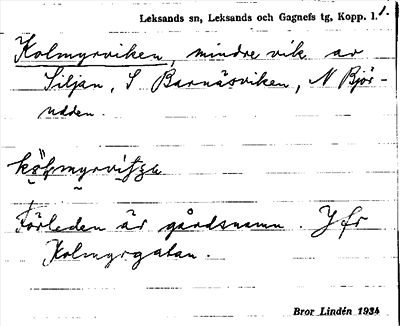 Leksands sn, Leksands och Gagnefs tg, Kopp. l. 1.
Kolmyrviken, mindre vik av
Siljan, S Barnäsviken, N Björ-
udden.
Förleden är gårdsnamn. Jfr
Kolmyrgatan.
Bror Lindén 1934